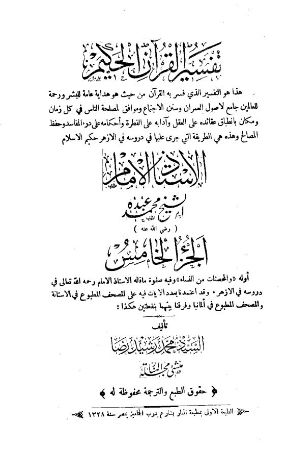 تفسير القرآن الحكيم
هذا هو التفسير الذي فسر به القرآن من حيث هو هداية عامة للبشر ورحمة
للعالمين جامع لأصول العمران وسنن الاجتماع وموافق لمصلحة الناس في كل زمان
ومكان بانطباق عقائده على العقل وآدابه على الفطرة وأحكامه على درء المفاسد وحفظ
المصالح وهذه هي الطريقة التي جرى عليها في دروسه في الأزهر حكيم الإسلام
الاستاذ الامام
الشيخ محمد عبده
( رضي الله عنه )
الجزء الخامس
أوله «والمحصنات من النساء» وفيه صفوة ما قاله الاستاذ الامام رحمه الله تعالى في
دروسه في الازهر، وقد اعتمدنا بعدد الآيات فيه على المصحف المطبوع في الاستانة
والمصحف المطبوع في ألمانيا وفرقنا بينهما بنقطتين هكذا :
تأليف
السيد محمد رشيد رضا
منشئ مجلة المنار
حقوق الطبع والترجمة محفوظة له
الطبعة الأولى بمطبعة المنار بشارع درب الجماميز بمصر سنة ١٣٢٨